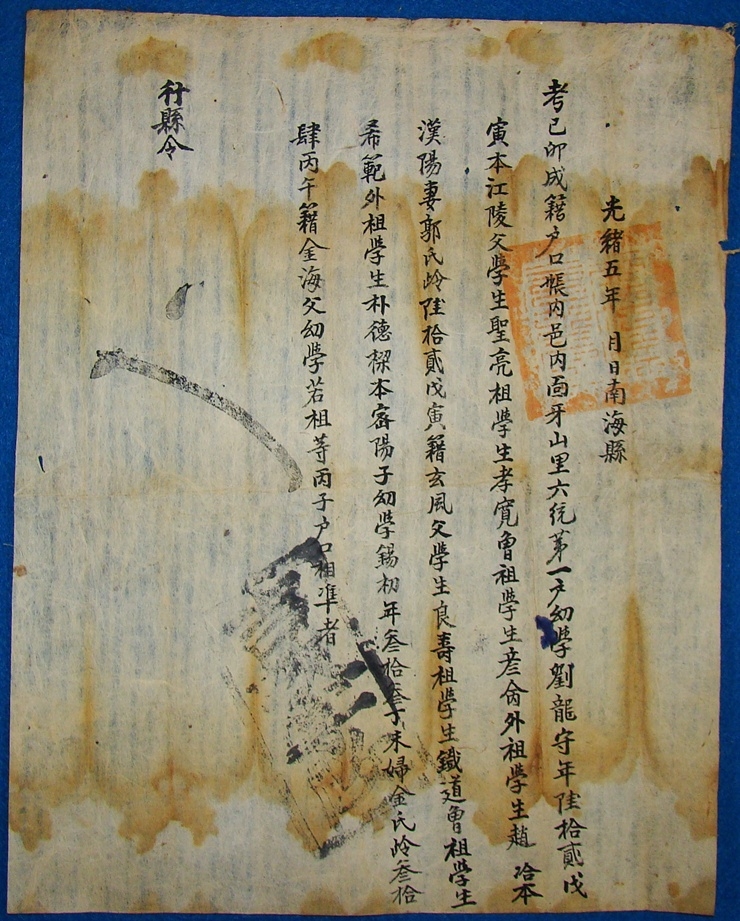 光緖五年 月日南海縣
考己卯成籍户口帳內邑內面牙山里六統第一户幼學劉龍守年陸拾貳戊
寅本江陵父學生聖亮祖學生孝寬曾祖學生彦 外祖學生趙 本
漢陽妻郭氏岭陸拾貳戊寅籍玄風父學生良壽祖學生鐵道曾祖學生
希範外祖學生朴德樑本密陽子幼學錫初年叁拾叁丁未婦金氏岭叁拾
肆丙午籍金海父幼學若祖等丙子户口相凖者
行縣令